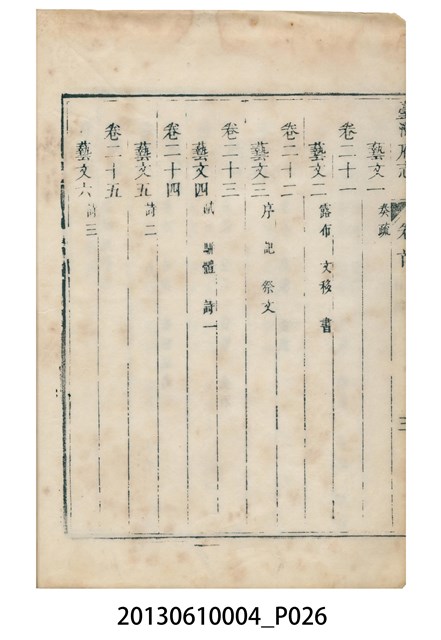 臺灣府志 卷首 三
藝文一
奏疏
卷二十一
藝文二
露布 文移 書
卷二十二
藝文三
序 記 祭文
卷二十三
藝文四
賦 駢體 詩一
卷二十四
藝文五
詩二
卷二十五
藝文六
詩三
20130610004_P026